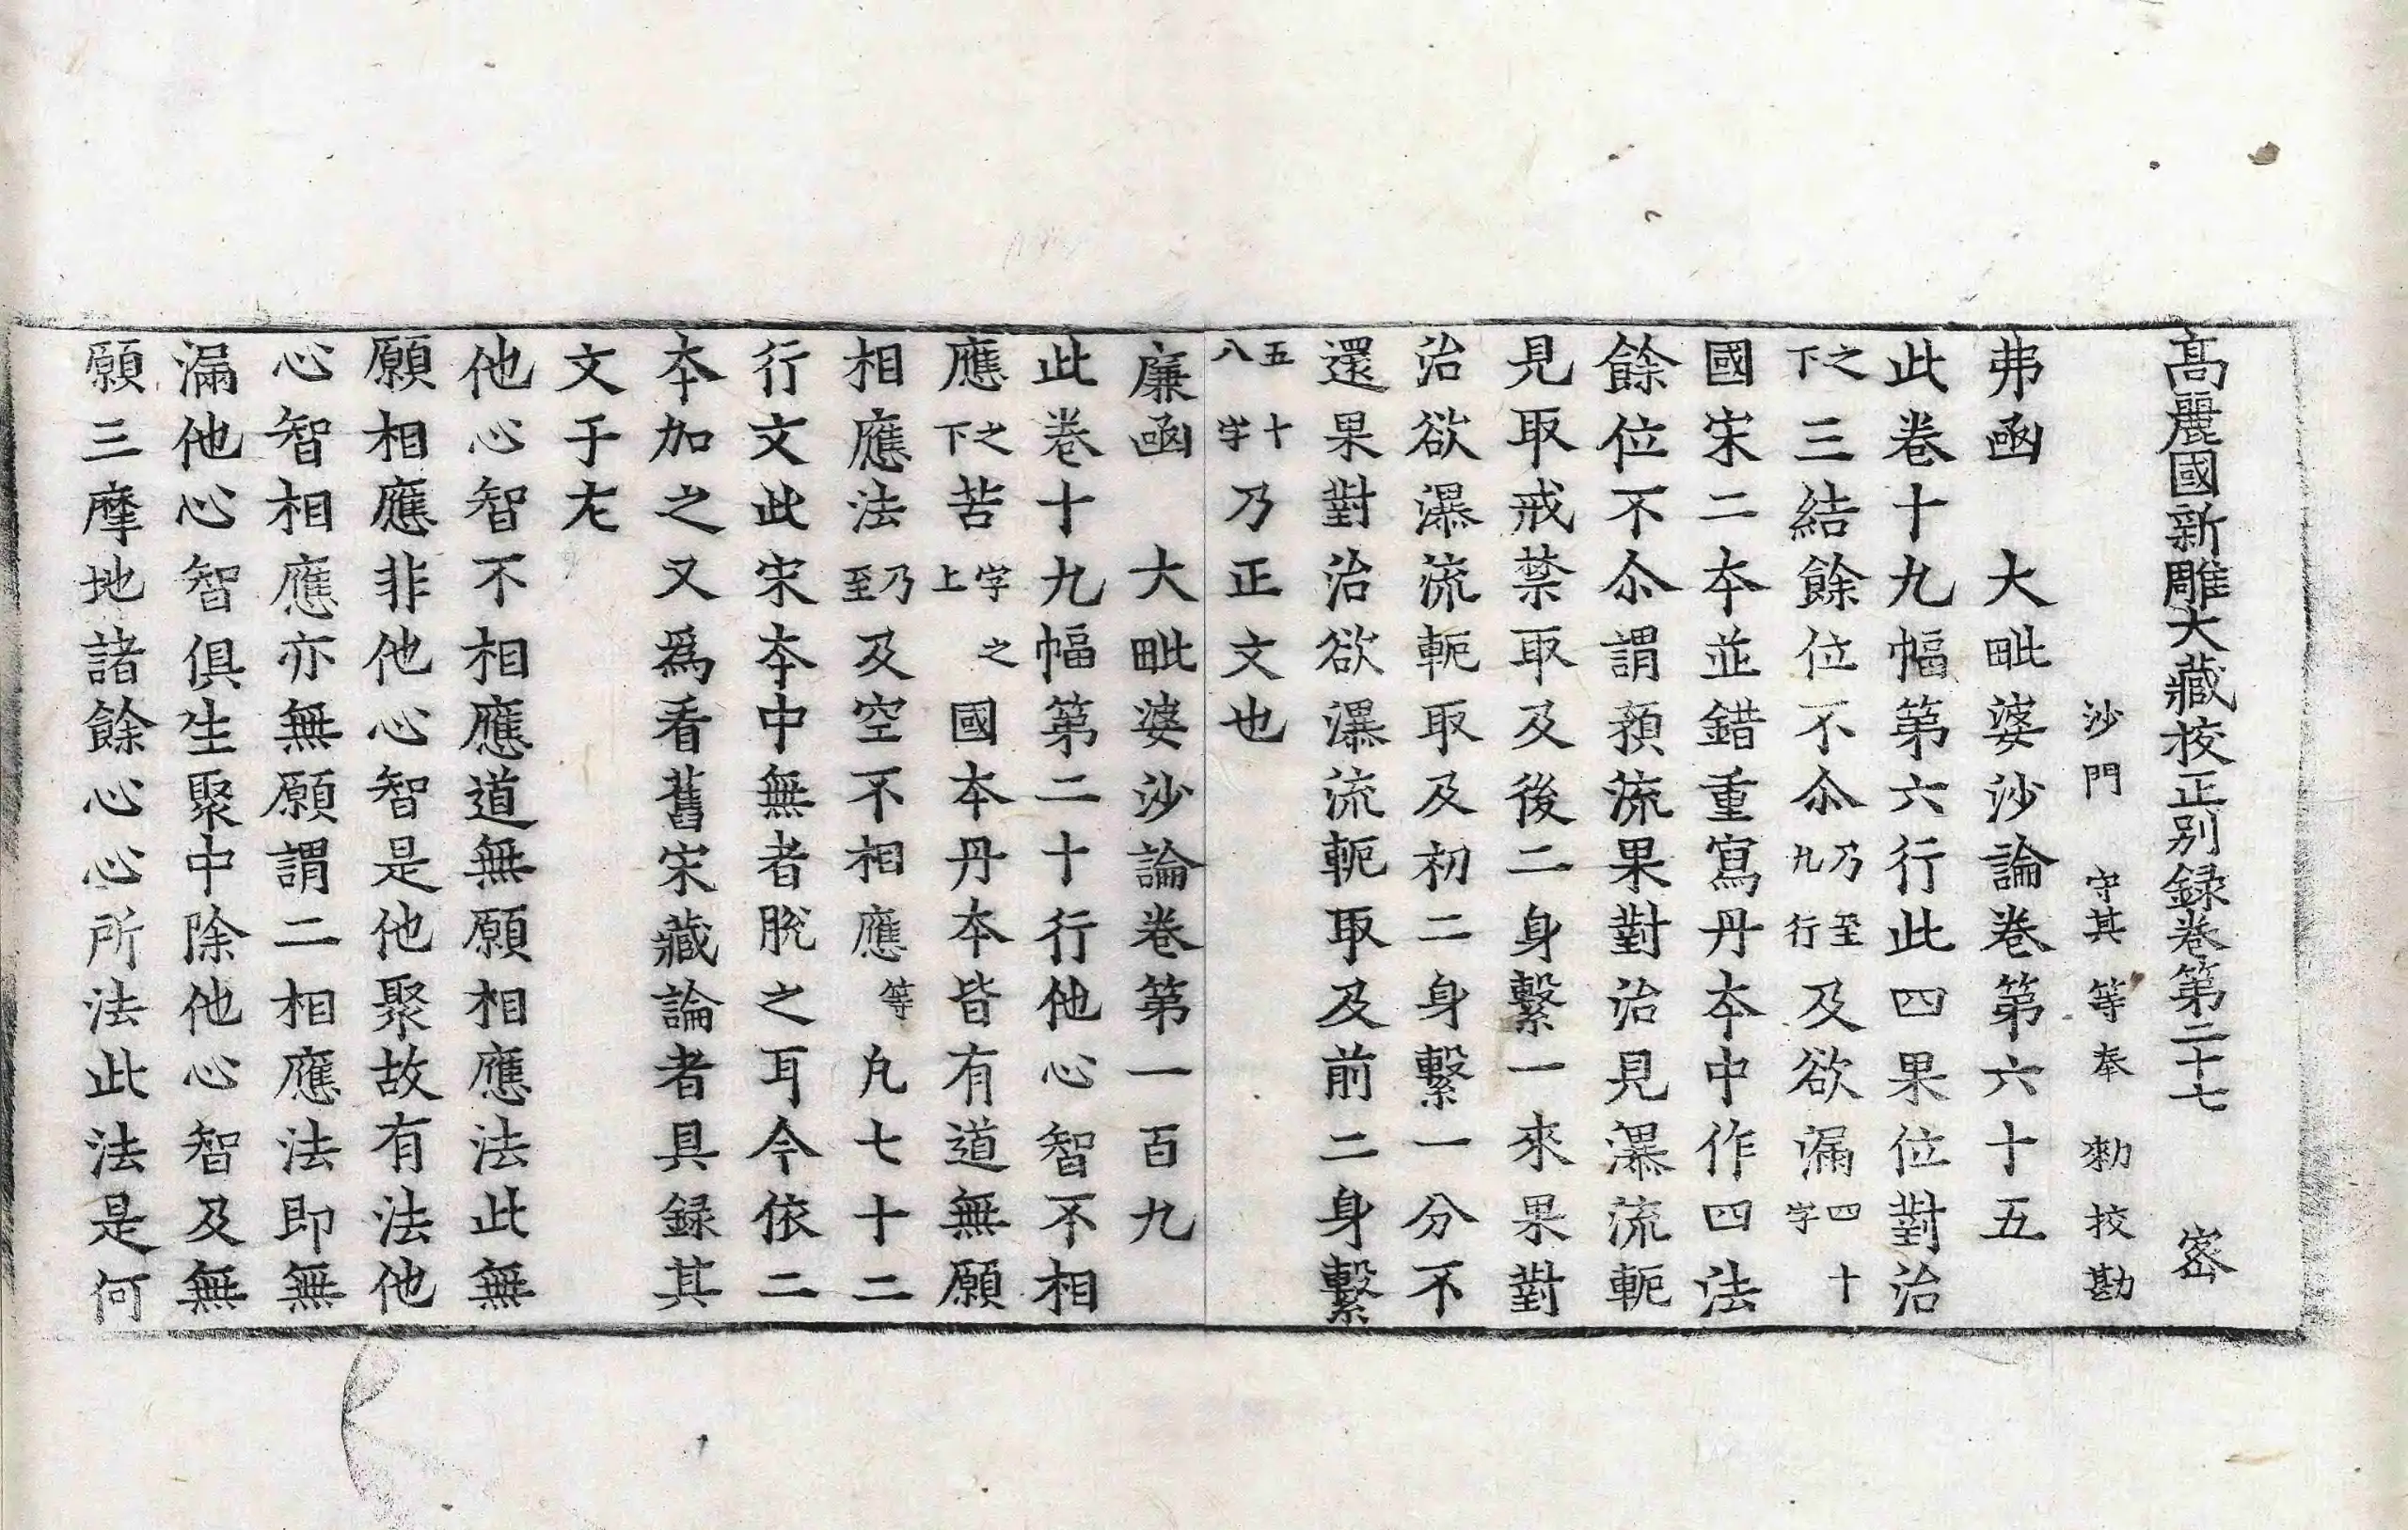 髙麗國新雕大藏校正別録卷第二十七　宻
沙門　守其等奉　勑挍勘
弗函　大毗婆沙論卷第六十五
此卷十九幅第六行此四果位對治
之下三結餘位不尒乃至九行及欲漏四十字
國宋二本並錯重寫丹本中作四法
餘位不尒謂預流果對治見瀑流軛
見取戒禁取及後二身繫一來果對
治欲瀑流軛取及初二身繫一分不
還果對治欲瀑流軛取及前二身繫
五十八字乃正文也
廉函　大毗婆沙論卷第一百九
此卷十九幅第二十行他心智不相
應之下苦字之上國本丹本皆有道無願
相應法乃至及空不相應等凡七十二
行文此宋本中無者脫之耳今依二
本加之又爲看舊宋藏論者具録其
文于左
他心智不相應道無願相應法此無
願相應非他心智是他聚故有法他
心智相應亦無願謂二相應法即無
漏他心智俱生聚中除他心智及無
願三摩地諸餘心心所法此法是何